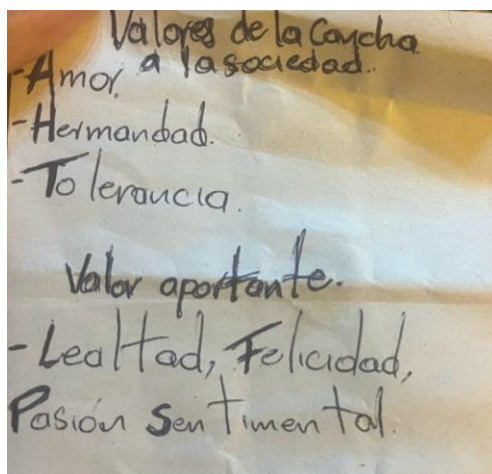 Valores de la Cancha
a la sociedad.
-Amor.
-Hermandad.
-Tolerancia.
Valor aportante.
-Lealtad, Felicidad,
Pasión Sentimental.